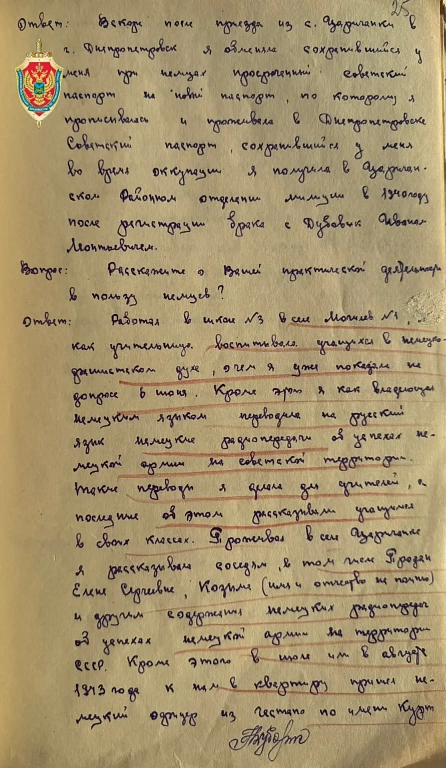 25
Ответ: Вскоре после приезда из с. Царичанки в
г. Днепропетровск я обменяла сохранившийся у
меня при немцах просроченный советский
паспорт на новый паспорт, по которому я
прописывалась и проживала в Днепропетровске
Советский паспорт, сохранившийся у меня
во время оккупации я получила в Царичан-
ском Районном отделении милиции в 1940 году
после регистрации брака с Дубовик Иваном
Леонтьевичем.
Вопрос: Расскажите о Вашей практической деятельности
в пользу немцев?
Ответ: Работая в школе №3 в селе Могилев №1,
как учительница воспитывала учащихся в немецко-
фашистском духе, о чем я уже показала на
допросе 6 июня. Кроме этого я как владеющая
немецким языком переводила на русский
язык немецкие радиопередачи об успехах не-
мецкой армии на советской территории.
Такие переводы я делала для учителей, а
последние об этом рассказывали учащимся
в своих классах. Проживая в селе Царичанке
я рассказывала соседям, в том числе Продан
Елене Сергеевне, Козыма (имя и отчество не помню)
и другим содержания немецких радиопередач
об успехах немецкой армии на территории
СССР. Кроме этого в июле или в августе
1943 года к нам в квартиру пришел не-
мецкий офицер из гестапо по имени Курт